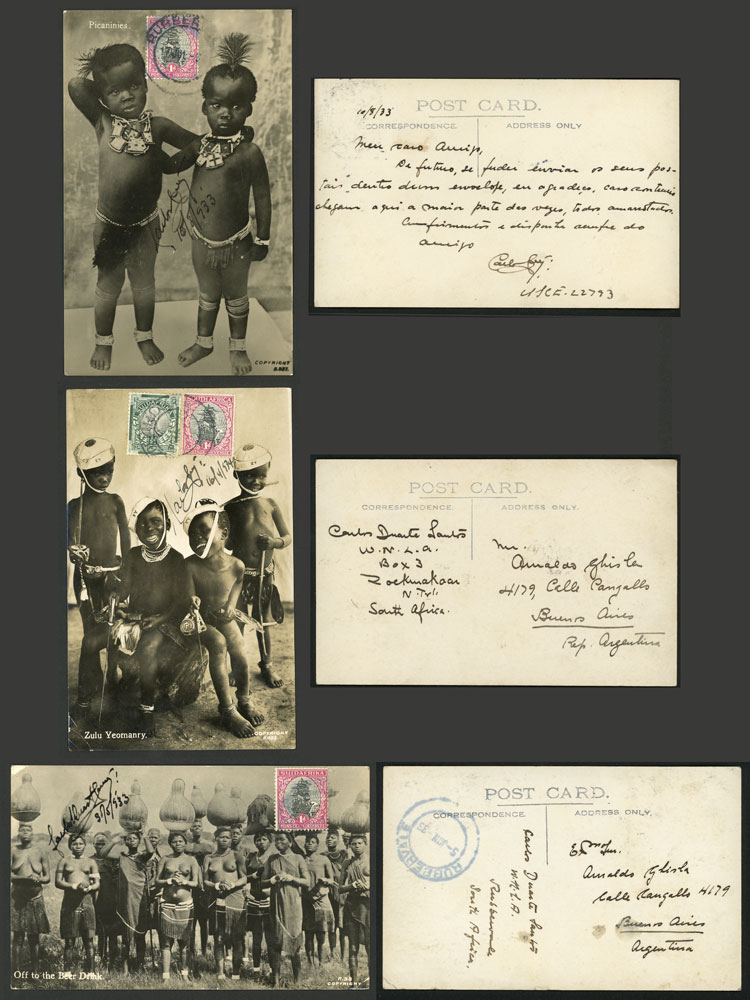 Picaninies.
RUPEES
1D
COPYRIGHT
POST CARD.
CORRESPONDENCE.
ADDRESS ONLY
10/8/33
Meu caro Amigo,
De futuro, se puder enviar os seus pos-
tais dentro dum envelope, eu agradeço, caso contrario
chegam aqui a maior parte das vezes, todos amarrotados.
Cumprimentos e disponha sempre do
amigo
USCE-22793
SOUTH AFRICA
1D
Zulu Yeomanry.
COPYRIGHT
POST CARD.
CORRESPONDENCE.
ADDRESS ONLY.
Carlos Duarte Santos
W.N.L.A.
Box 3
Zoekmakaar
N. Tvl.
South Africa.
Mr.
Arnaldo Ghisla
4179, Calle Cangallo
Buenos Aires
Rep. Argentina
31/5/933
SUIDAFRIKA
1D
Off to the Beer Drink.
COPYRIGHT
POST CARD.
CORRESPONDENCE.
ADDRESS ONLY.
Carlos Duarte Santos
W.N.L.A.
South Africa.
Arnaldo Ghisla
Calle Cangallo 4179
Buenos Aires
Argentina